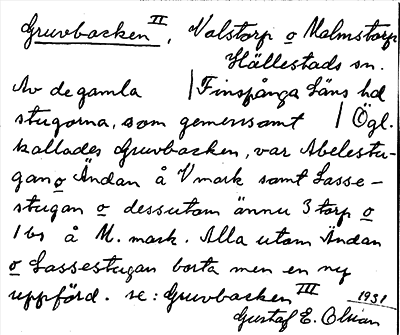 Gruvbacken II, Valstorp o Malmstorp
Hällestads sn.
Av de gamla | Finspånga Läns hd
stugorna, som gemensamt | Ögl.
kallades Gruvbacken, var Abelestu-
gan o Ändan å V mark samt Lasse-
stugan o dessutom ännu 3 torp o
1 bs å M. mark. Alla utom Ändan
o Lassestugan borta men en ny
uppförd. se: Gruvbacken III
1931
Gustaf E. Olsson